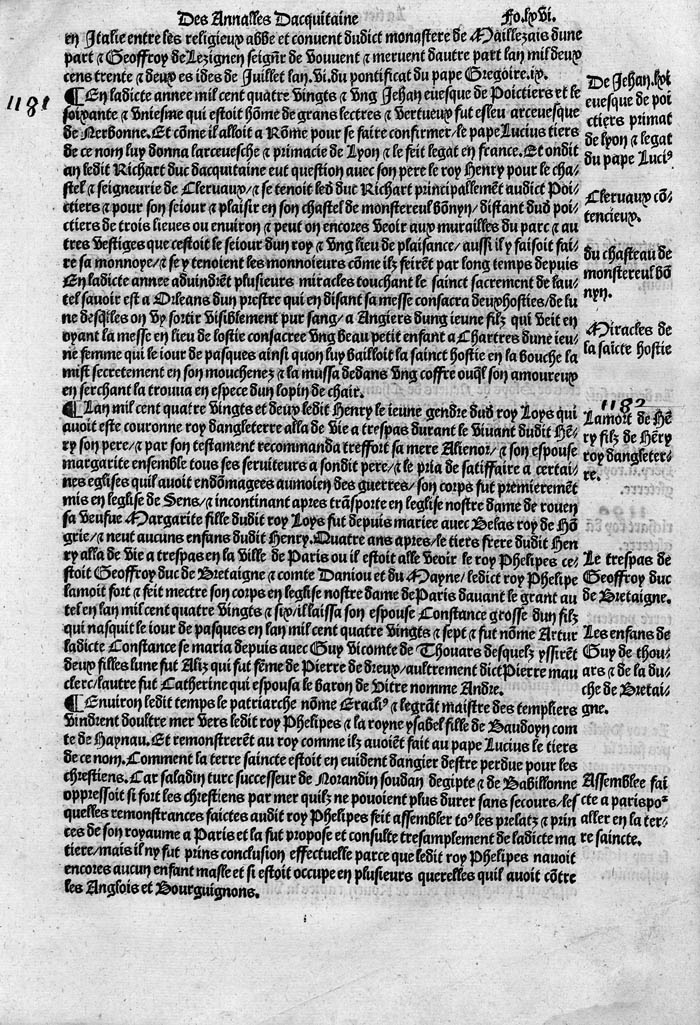 Des Annalles Dacquitaine
Fo.lxvi.
en Italie entre les religieux abbe et convent dudict monastere de Maillezais dune
part ⁊ Geoffroy de Lezignen seignr̄ de Vouvent ⁊ mervent dautre part lan mil deux
cens trente ⁊ deux es ides de Juillet lan.vi.du pontificat du pape Gregoire.ix.
1181
¶En ladicte annee mil cent quatre vingts ⁊ vng Jehan evesque de Poictiers et le
soixante ⁊ vniesme qui estoit hōme de grans lectres ⁊ vertueux fut esleu arcevesque
de Nerbonne. Et cōme il alloit a Rōme pour se faire confirmer/le pape Lucius tiers
de ce nom luy donna larcevesche ⁊ primacie de Lyon ⁊ le feit legat en france. Et ondit
an ledit Richart duc dacquitaine eut question avec son pere le roy Henry pour le cha/
stel ⁊ seigneurie de Clervaux/⁊ se tenoit led duc Richart principallemēt audict Poi/
ctiers ⁊ pour son seiour ⁊ plaisir en son chastel de monstereul bōnyn/distant dud poi/
ctiers de trois lieues ou environ ⁊ peut on encores veoir aux murailles du parc ⁊ au
tres vestiges que cestoit le seiour dun roy ⁊ vng lieu de plaisance/aussi il y faisoit fai/
re sa monnoye/⁊ se y tenoient les monnoieurs cōme ilz feirēt par long temps depuis
En ladicte annee advindrēt plusieurs miracles touchant le sainct sacrement de lau/
tel savoir est a Orleans dun prestre qui en disant sa messe consacra deux hosties/de lu
ne desq̄lles on vy sortir visiblement pur sang/a Angiers dung ieune filz qui veit en
oyant la messe en lieu de lostie consacree vng beau petit enfant a Chartres dune ieu/
ne femme qui le iour de pasques ainsi quon luy bailloit la sainct hostie en la bouche la
mist secretement en son mouchenez ⁊ la mussa dedans vng coffre ouq̄l son amoureux
en serchant la trouva en espece dun lopin de chair.
¶Lan mil cent quatre vingts et deux ledit Henry le ieune gendre dud roy Loys qui
avoit este couronne roy dangleterre alla de vie a trespas durant le vivant dudit Hē/
ry son pere/⁊ par son testament recommanda treffort sa mere Alienor/⁊ son espouse
margarite ensemble tous ses serviteurs a sondit pere/⁊ le pria de satiffaire a certai/
nes eglises quil avoit endōmagees au moien des guerres/son corps fut premieremēt
mis en leglise de Sens/⁊ incontinant apres trāsporte en leglise nostre dame de rouen
sa veufve Margarite fille dudit roy Loys fut depuis mariee avec Belas roy de Hō
grie/⁊ neut aucuns enfans dudit Henry. Quatre ans apres/le tiers frere dudit Hen
ry alla de vie a trespas en la ville de Paris ou il estoit alle veoir le roy Phelipes ce/
stoit Geoffroy duc de Bretaigne ⁊ comte Daniou et du Mayne/ledict roy Phelipe
lamoit fort ⁊ feit mectre son corps en leglise nostre dame de Paris davant le grant au
tel en lan mil cent quatre vingts ⁊ six/il laissa son espouse Constance grosse dun filz
qui nasquit le iour de pasques en lan mil cent quatre vingts ⁊ sept ⁊ fut nōme Artur
ladicte Constance se maria depuis avec Guy viconte de Thouars desquelz yssirēt
deux filles lune fut Aliz qui fut fēme de Pierre de dreux/aultrement dict Pierre mau
clerc/lautre fut Catherine qui espousa le baron de Vitre nomme Andre.
¶Environ ledit temps le patriarche nōme Eracliꝰ ⁊ legrāt maistre des templiers
vindrent doultre mer vers ledit roy Phelipes ⁊ la royne ysabel fille de Baudoyn com
te de Haynau. Et remonstrerēt au roy comme ilz avoiēt fait au pape Lucius le tiers
de ce nom. Comment la terre saincte estoit en evident dangier destre perdue pour les
chrestiens. Car saladin turc successeur de Norandin soudan degipte ⁊ de Babillonne
oppressoit si fort les chrestiens par mer quilz ne povoient plus durer sans secours/les
quelles remonstrances faictes audit roy Phelipes feit assembler toꝰ les prelatz ⁊ prin
ces de son royaume a Paris et la fut propose et consulte tresamplement de ladicte ma
tiere/mais il ny fut prins conclusion effectuelle parce que ledit roy Phelipes navoit
encores aucun enfant masle et si estoit occupe en plusieurs querelles quil avoit cōtre
les Anglois et Bourguignons.
De Jehan.lxi
evesque de poi
ctiers primat
de lyon ⁊ legat
du pape Luciꝰ
Clervaux cō/
tencieux.
du chasteau de
monstereul bō
nyn.
Miracles de
la saīcte hostie
1182
La mort de Hē
ry filz de Hēry
roy dangleter/
re.
Le trespas de
Geoffroy duc
de Bretaigne.
Les enfans de
Guy de thou/
ars ⁊ de la du/
che de Bretai/
gne.
Assemblee fai
cte a paris poꝰ
aller en la ter/
re saincte.